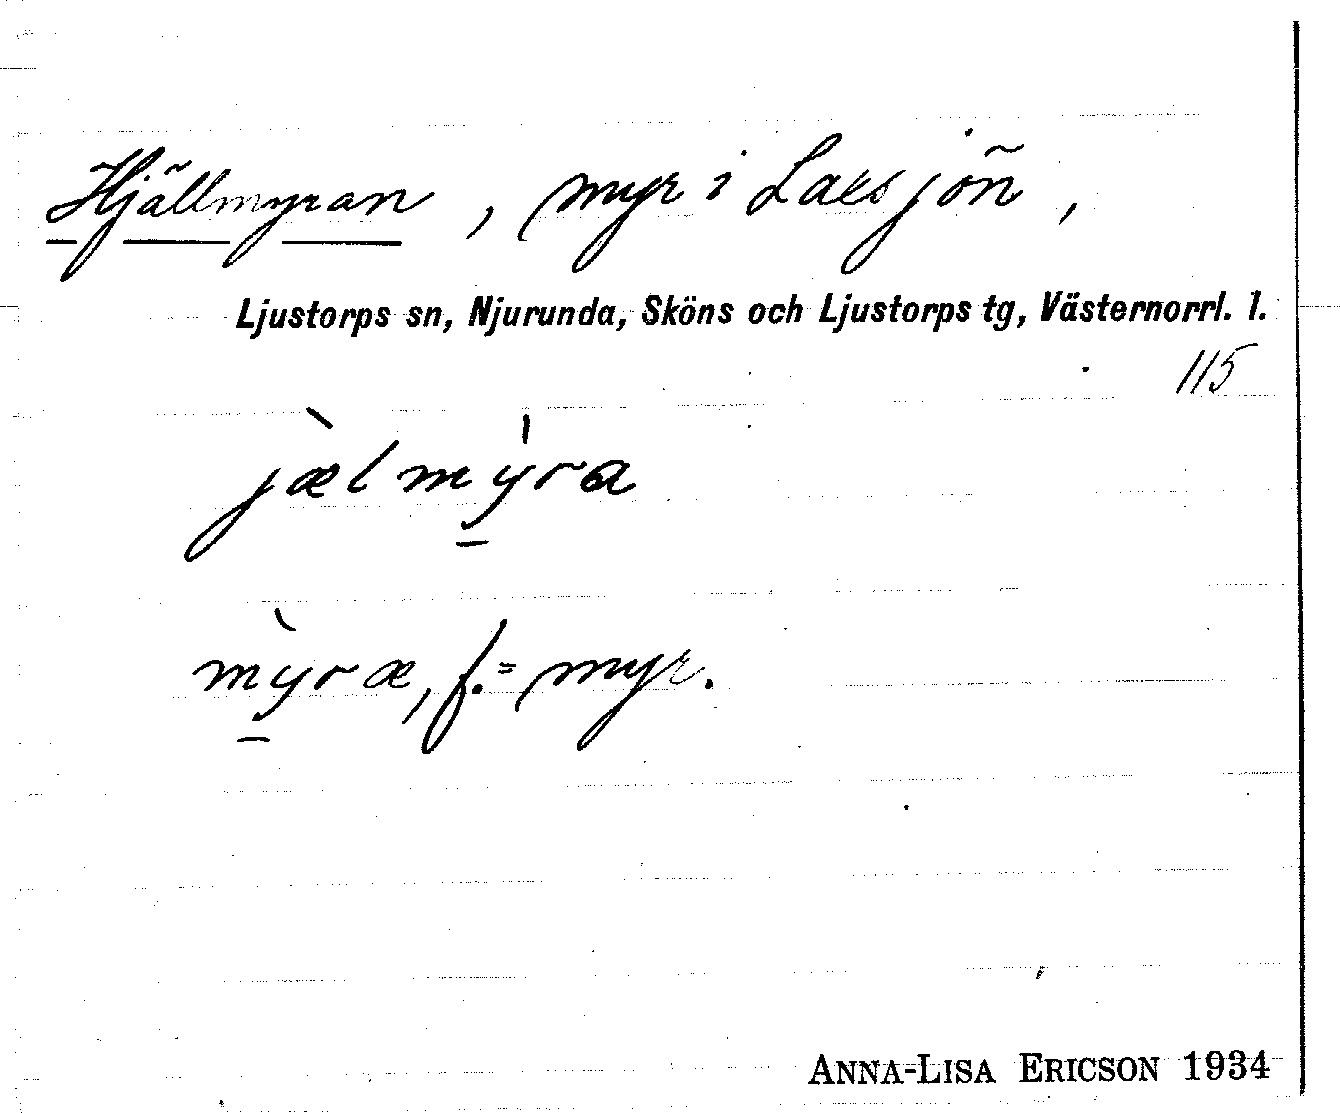 Hjällmyran, myr i Laxsjön,
Ljustorps sn, Njurunda, Sköns och Ljustorps tg, Västernorrl. l.
115
jæ̀lmy̱̍ra
mỳ̱ræ, f. = myr.
ANNA-LISA ERICSON 1934